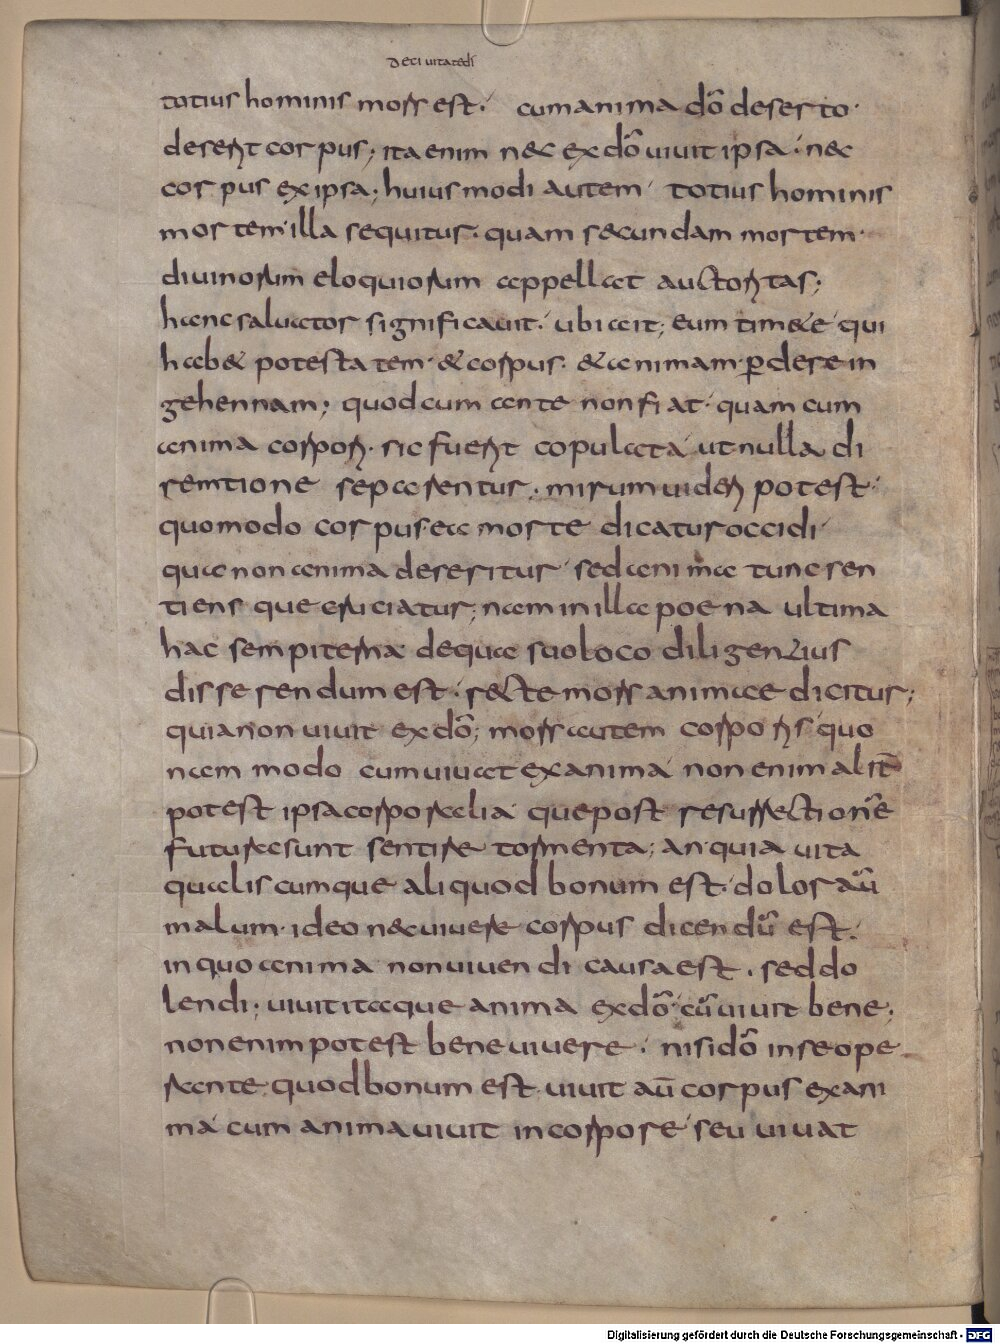 De civitate di
totius hominis mors est. cum anima dō deserto
deserit corpus; ita enim nec ex dō vivit ipsa. nec
corpus ex ipsa; huiusmodi autem totius hominis
mortem illa sequitur. quam secundam mortem
divinorum eloquiorum appellat auctoritas;
hanc salvator significavit. ubi ait; eum timete qui
habet potestatem. et corpus. et animam. ꝑdere in
gehennam; quod cum ante non fiat. quam cum
anima corpori. sic fuerit copulata ut nulla di
remtione separentur. mirum videri potest.
quomodo corpus ea morte dicatur occidi
qua non anima deseritur sed animae tunc sen
tiens que cruciatur; nam in illa poena ultima
hac sempiterna de qua suo loco diligentius
disserendum est. recte mors animae dicitur;
quia non vivit ex dō; mors autem corporis quo
nam modo cum vivat ex anima non enim alit̄
potest ipsa corporalia que post resurrectionē
futura sunt sentire tormenta; an quia vita
qualiscumque aliquod bonum est. dolor aū
malum. ideo nec vivere corpus dicendū est.
in quo anima non vivendi causa est. sed do
lendi; vivit itaque anima ex dō. cū vivit bene;
non enim potest bene vivere. nisi dō in se ope
rante quod bonum est. vivit aū corpus ex ani
ma cum anima vivit in corpore seu vivat
Digitalisierung gefördert durch die Deutsche Forschungsgemeinschaft - DFG